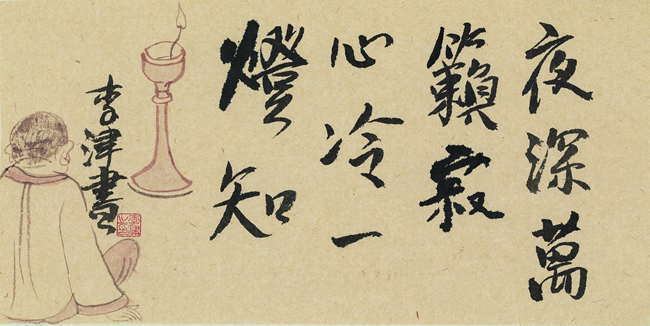 夜深萬
籟寂
心冷一
燈知
李津書